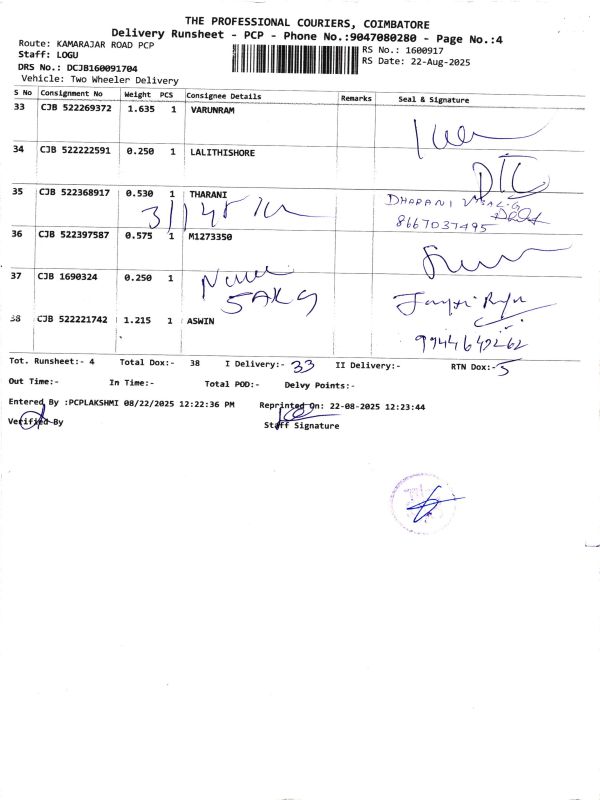 THE PROFESSIONAL COURIERS, COIMBATORE
Delivery Runsheet - PCP - Phone No.:9047080280 - Page No.:4
Route: KAMARAJAR ROAD PCP
RS No.: 1600917
Staff: LOGU
RS Date: 22-Aug-2025
DRS No.: DCJB160091704
Vehicle: Two Wheeler Delivery
S No Consignment No Weight PCS Consignee Details Remarks Seal & Signature
33 CJB 522269372 1.635 1 VARUNRAM
34 CJB 522222591 0.250 1 LALITHISHORE
35 CJB 522368917 0.530 1 THARANI
DHARANI
8667037495
36 CJB 522397587 0.575 1 M1273350
37 CJB 1690324 0.250 1
38 CJB 522221742 1.215 1 ASWIN
9944649262
Tot. Runsheet:- 4 Total Dox:- 38 I Delivery:- 33 II Delivery:- RTN Dox:- 5
Out Time:- In Time:- Total POD:- Delvy Points:-
Entered By :PCPLAKSHMI 08/22/2025 12:22:36 PM Reprinted On: 22-08-2025 12:23:44
Verified By Staff Signature